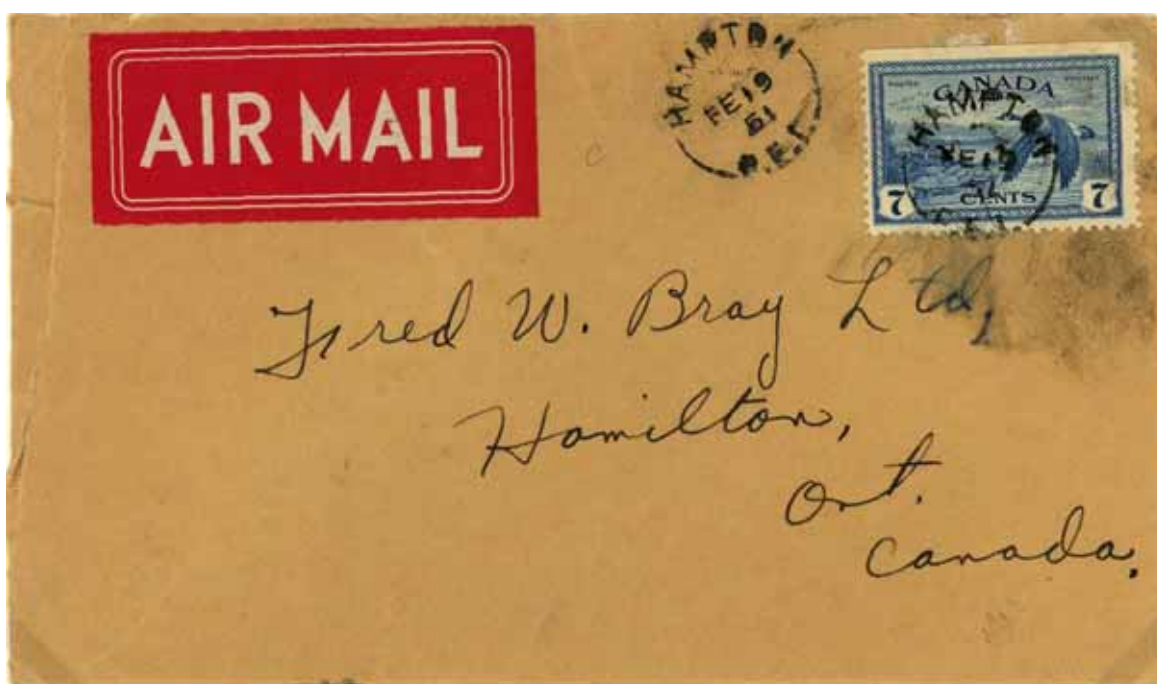 AIR MAIL
HAMPTON
FE 19
51
P.E.I.
CANADA
HAMPTON
FE 19
P.E.I.
7 CENTS 7
Fred W. Bray Ltd,
Hamilton,
Ont.
Canada.